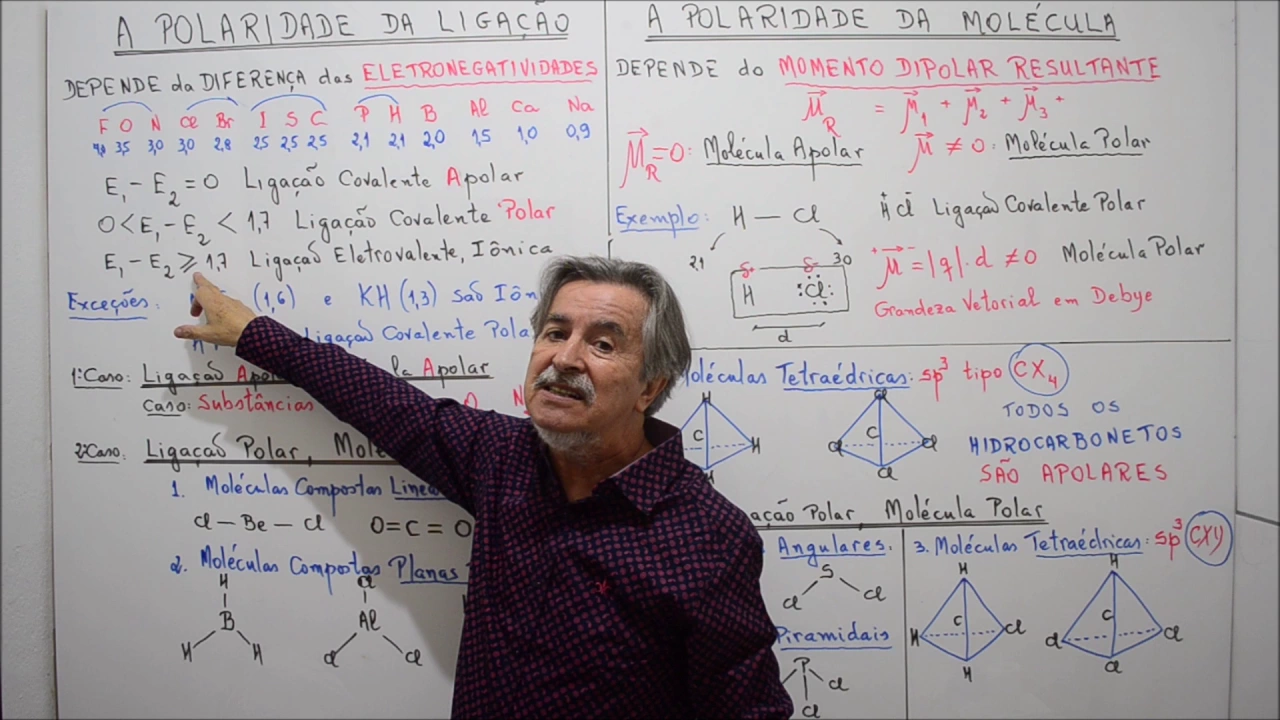 A POLARIDADE DA LIGAÇÃO
DEPENDE da DIFERENÇA das ELETRONEGATIVIDADES
F O N Cl Br I S C P H B Al Ca Na
4,0 3,5 3,0 3,0 2,8 2,5 2,5 2,5 2,1 2,1 2,0 1,5 1,0 0,9
E₁ - E₂ = 0 Ligação Covalente Apolar
0 < E₁ - E₂ < 1,7 Ligação Covalente Polar
E₁ - E₂ ⩾ 1,7 Ligação Eletrovalente, Iônica
Exceções: (1,6) e KH (1,3) são
Ligação Covalente
1º Caso: Ligação Apolar
Caso: Substâncias
2º Caso: Ligação Polar,
1. Moléculas Compostas
Cl — Be — Cl O=C=O
2. Moléculas Compostas Planas
H Cl
B Al
H H Cl Cl
A POLARIDADE DA MOLÉCULA
DEPENDE do MOMENTO DIPOLAR RESULTANTE
μ⃗R = μ⃗1 + μ⃗2 + μ⃗3 +
μ⃗R = 0: Molécula Apolar μ⃗ ≠ 0: Molécula Polar
Exemplo: H — Cl HCl Ligação Covalente Polar
2,1 3,0
δ+ δ-
H Cl
d
+ μ⃗ - = |q|.d ≠ 0 Molécula Polar
Grandeza Vetorial em Debye
Moléculas Tetraédricas: sp³ tipo CX₄
H Cl
C H Cl C Cl
H Cl
TODOS OS
HIDROCARBONETOS
SÃO APOLARES
Polar, Molécula Polar
Angulares.
S
Cl Cl
Piramidais
P
Cl
Cl
3. Moléculas Tetraédricas: sp³ CXY
H H
H C Cl Cl C Cl
H Cl